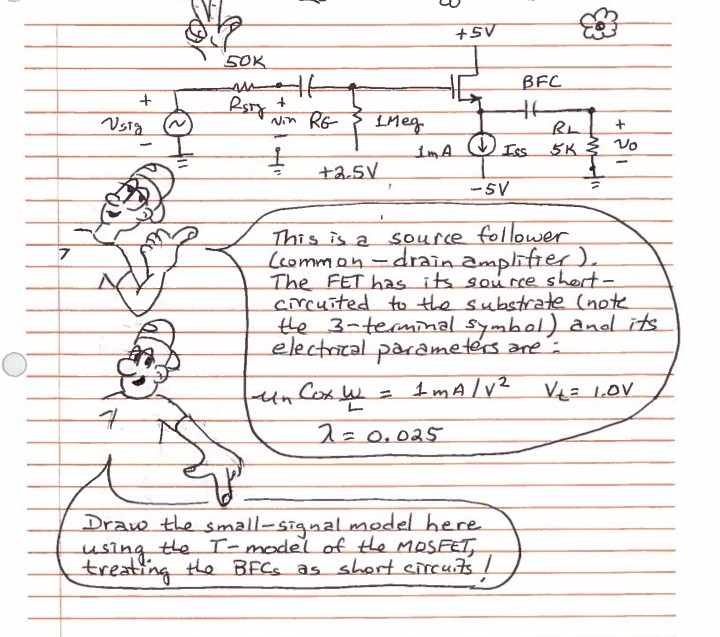 +5V
50K
BFC
+
Rsig
+
Vsig
Vin
RG
1Meg
RL
+
-
-
1mA
Iss
5K
Vo
-
+2.5V
-5V
This is a source follower
(common-drain amplifier).
The FET has its source short-
circuited to the substrate (note
the 3-terminal symbol) and its
electrical parameters are:
μn Cox W/L = 1mA/V² Vt = 1.0V
λ = 0.025
Draw the small-signal model here
using the T-model of the MOSFET,
treating the BFCs as short circuits!